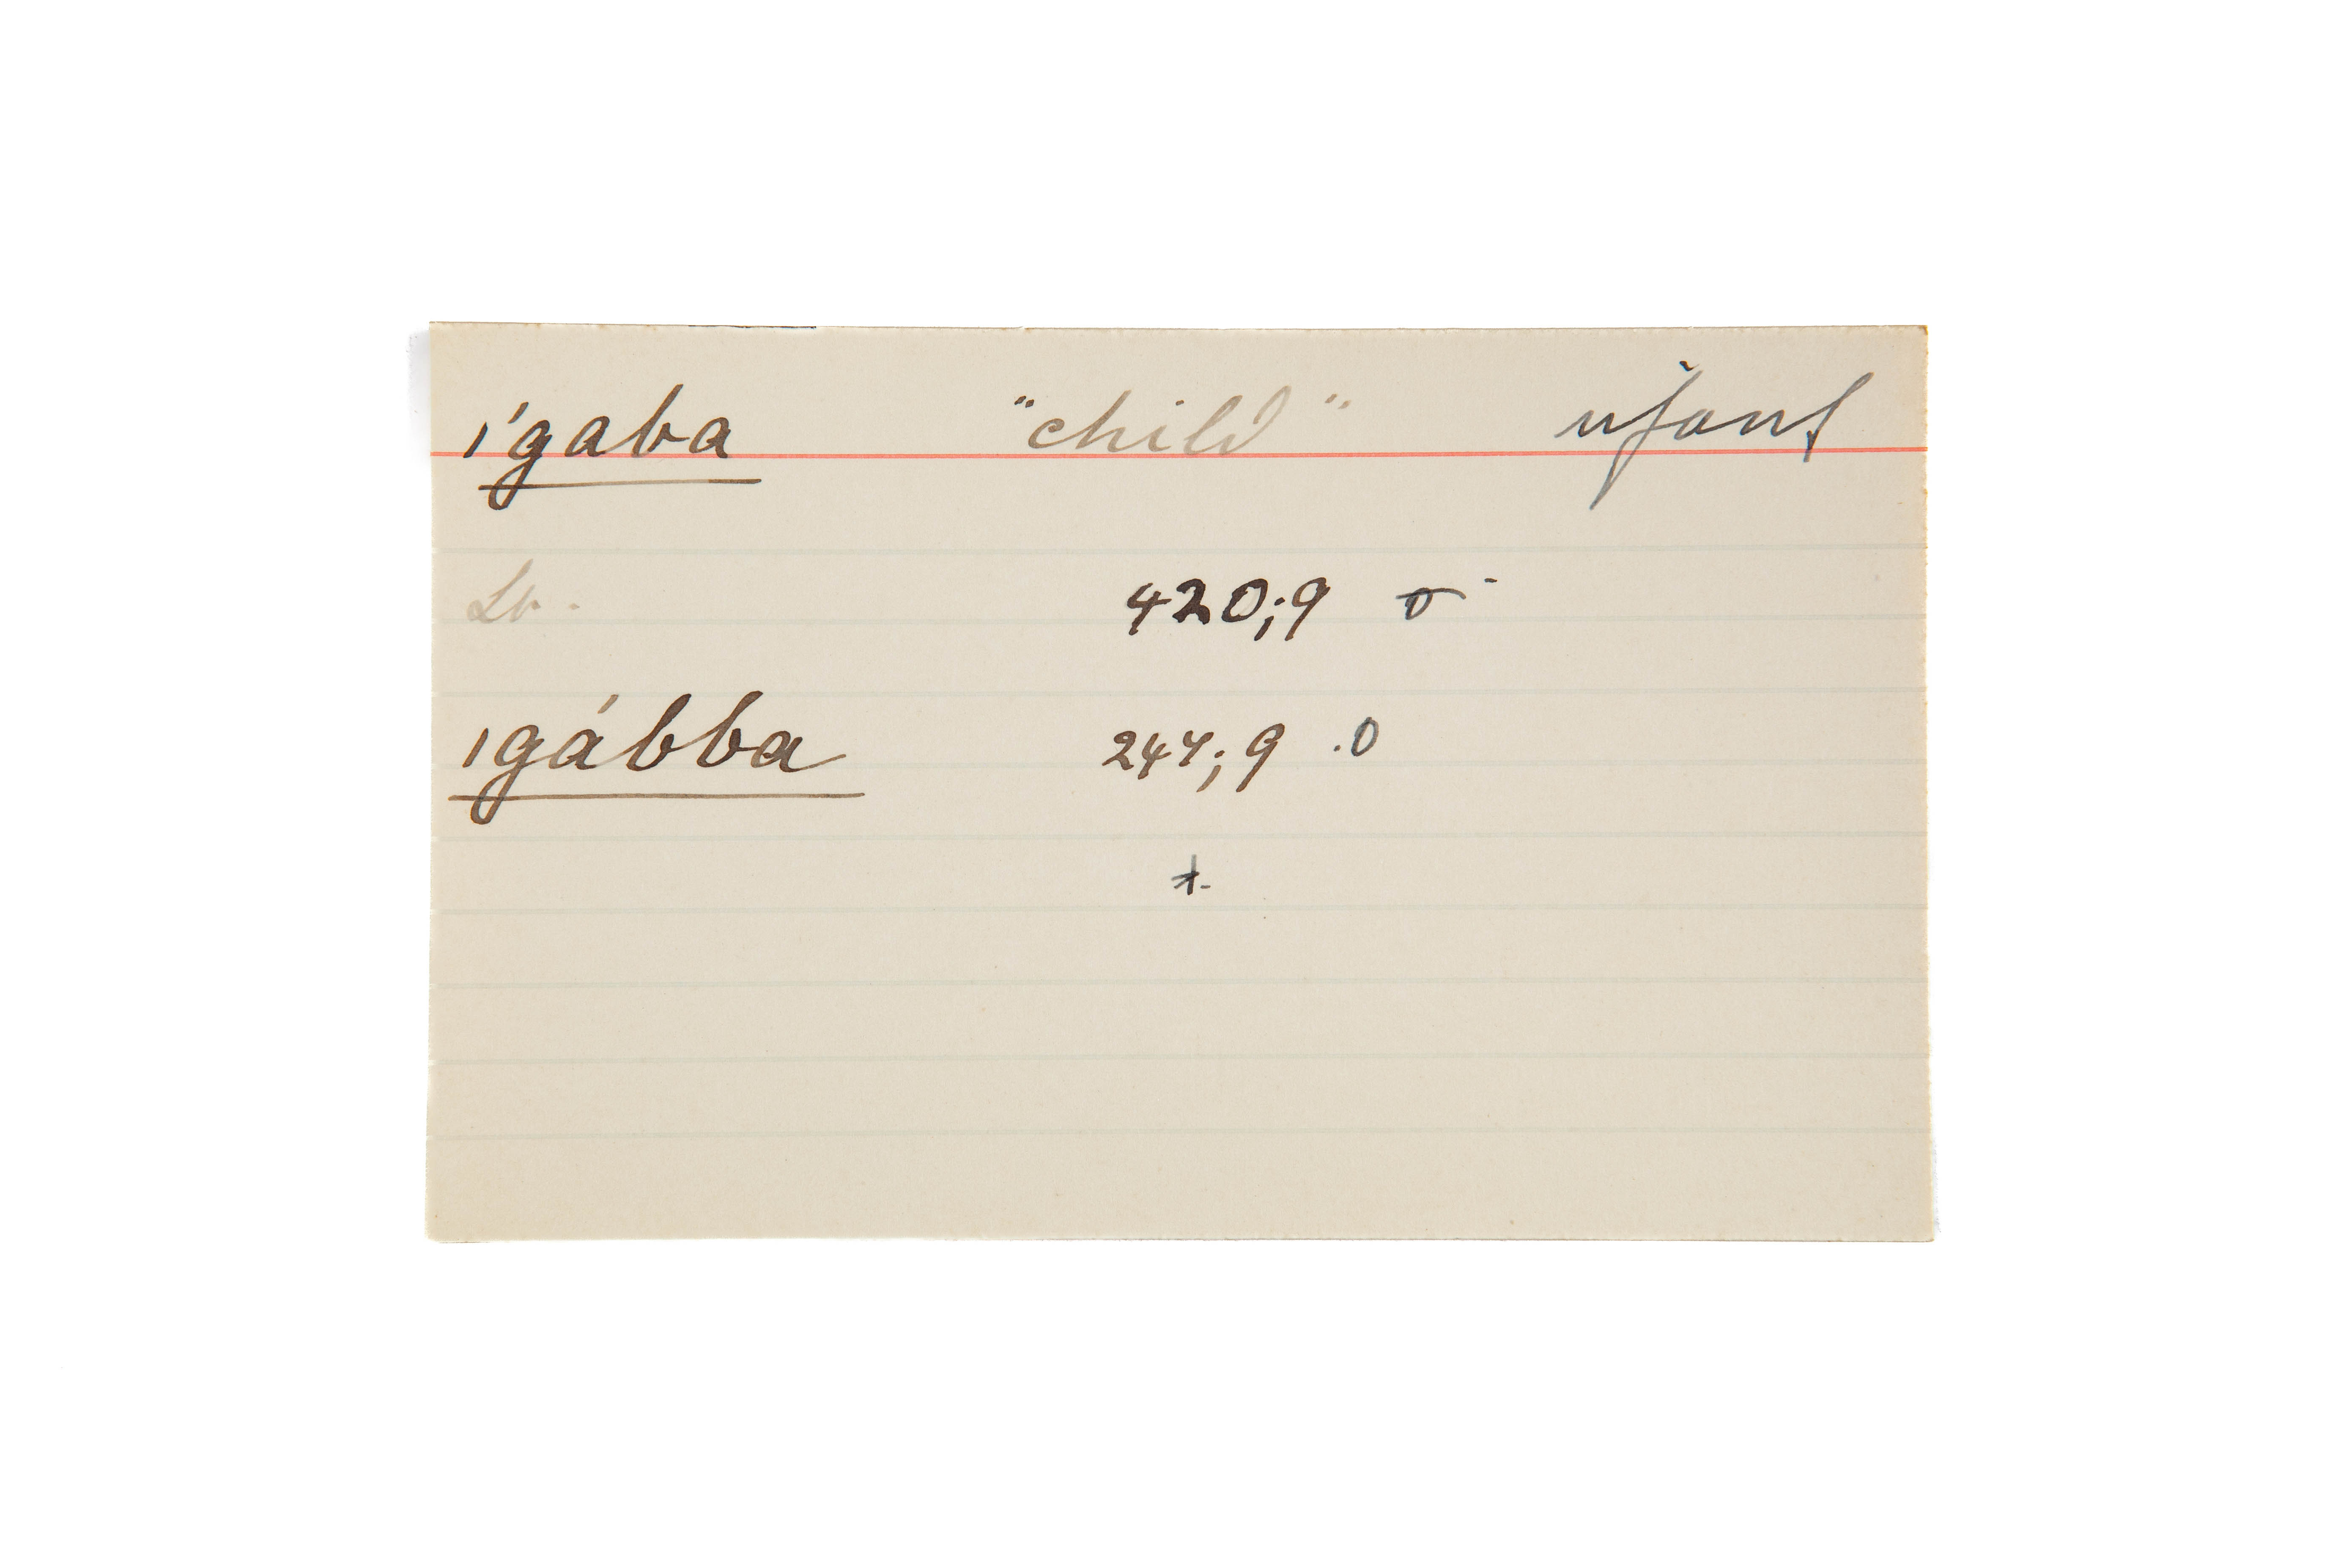 ígaba "child" infant
Lb.
420;9 o
igábba 247;9 .0